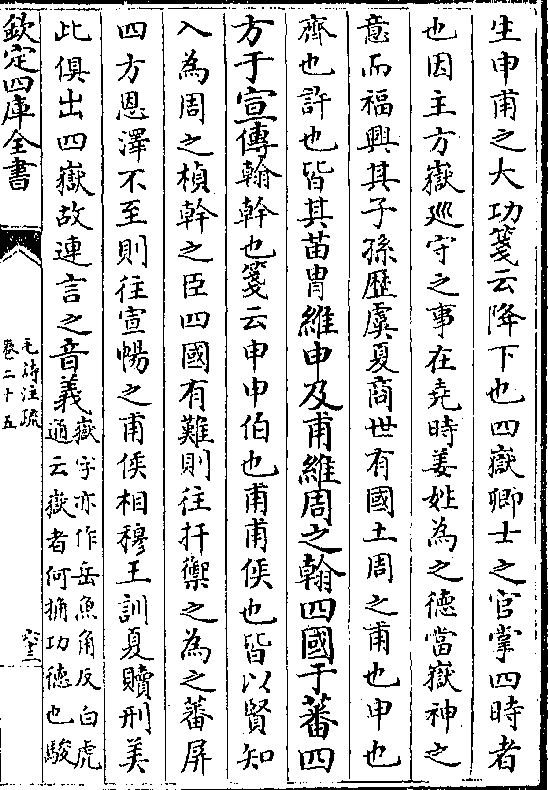 生申甫之大功箋云降下也四嶽卿士之官掌四時者
也因主方嶽巡守之事在堯時姜姓為之德當嶽神之
意而福興其子孫歴虞夏商世有國土周之甫也申也
齊也許也皆其苗胄維申及甫維周之翰四國于蕃四
方于宣傳翰幹也箋云申申伯也甫甫侯也皆以賢知
入為周之楨幹之臣四國有難則往扞禦之為之蕃屏
四方恩澤不至則往宣暢之甫侯相穆王訓夏贖刑美
此俱出四嶽故連言之音義嶽字亦作岳魚角反白虎
通云嶽者何桷功德也駿
欽定四庫全書
毛詩注疏
卷二十五